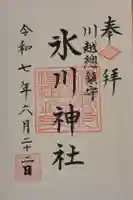 奉拝
川越総鎮守
氷川神社
令和七年六月二十二日